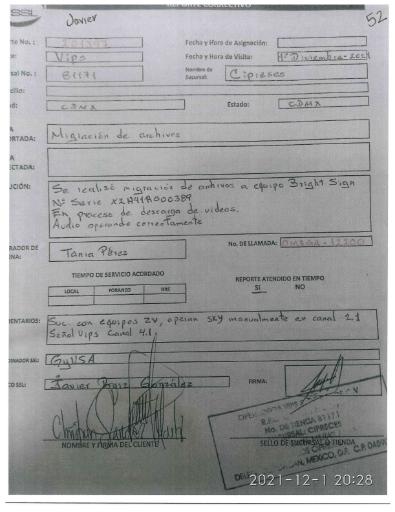 REPORTE CORRECTIVO
SSL
Javier
52
te No. :
Fecha y Hora de Asignación:
Vips
Fecha y Hora de Visita: 1° Diciembre-2021
sal No. : 81171
Nombre de Sucursal: Cipreses
cilio:
CDMX
Estado: CDMX
RTADA: Migración de archivos
ECTADA:
UCIÓN: Se realizó migración de archivos a equipo Bright Sign
N° Serie X2A41A000389
En proceso de descarga de videos.
Audio operando correctamente
RADOR DE
Tania Pérez
No. DE LLAMADA: OMEGA-12200
TIEMPO DE SERVICIO ACORDADO
REPORTE ATENDIDO EN TIEMPO
LOCAL FORANEO HRS
SI NO
ENTARIOS: Suc. con equipos ZV, operan SKY manualmente en canal 2.1
Señal Vips Canal 4.1
DINADOR SSL: GyUSA
CO SSL: Javier González
FIRMA:
NOMBRE Y FIRMA DEL CLIENTE
SELLO DE SUCURSAL O TIENDA
No. DE TIENDA 81171
SUCURSAL: CIPRECES
MEXICO, D.F. C.P.
2021-12-1 20:28